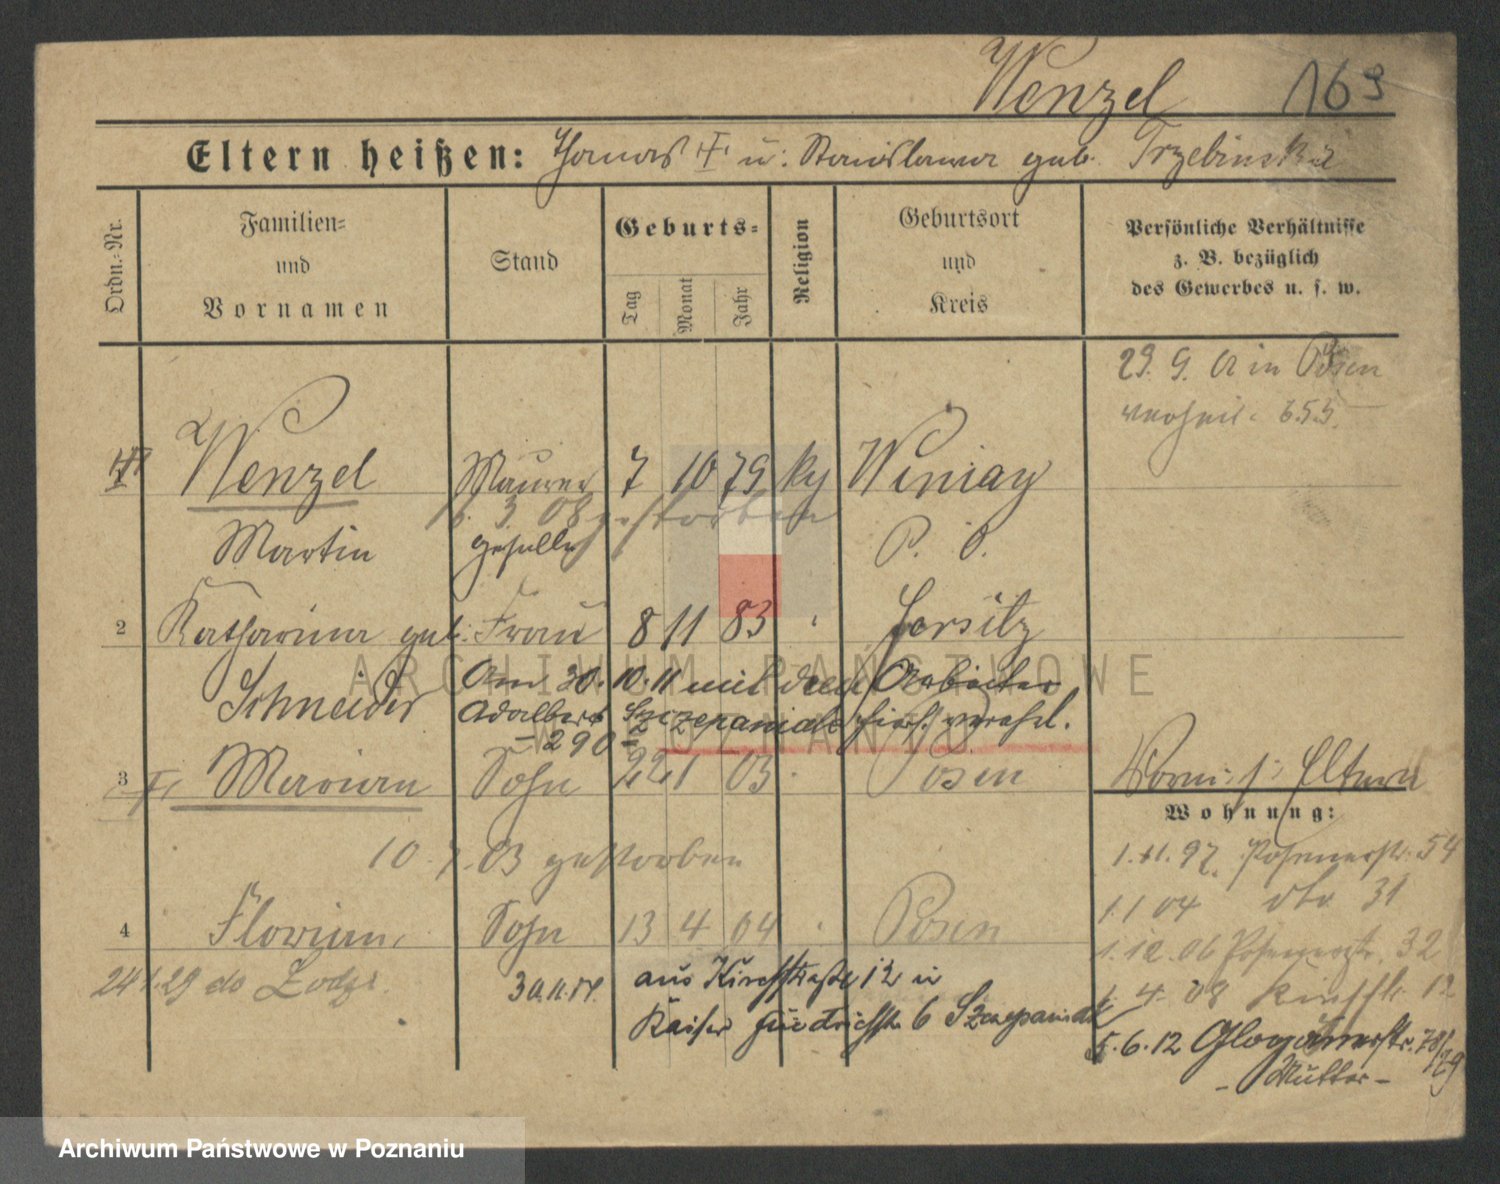 Wenzel 169
Eltern heißen: Thomas † u: Stanislawa geb. Trzebinska
Ordn.=Nr.
Familien=
und
Vornamen
Stand
Geburts=
Tag
Monat
Jahr
Religion
Geburtsort
und
Kreis
Persönliche Verhältnisse
z. B. bezüglich
des Gewerbes u. s. w.
29. 9. 02 in Posen
verheir. 653.
Wenzel Maurer 7 10 79 kg Winiary
3 08 gestorben
Martin geselle P. O.
2 Katharina geb. Frau 8 11 83 Jersitz
Schneider Am 30. 10. 11 mit dem Arbeiter
Adalbert Szczepaniak hier verehel.
- 290 -
3 † Marian Sohn 22 1 03 Posen
Vorm. s. Eltern
Wohnung:
10. 7. 03 gestorben
1. 11. 97. Posenerstr. 54
1. 1 04 dto 31
4 Florian Sohn 13 4 04 Posen
1. 12. 06 Posenerstr. 32
24 1. 29 do Lodzi.
30.11.11. aus Kirchstraße 12 in
1. 4. 08 Kirchstr. 12
Kaiser Friedrichstr 6 Szczepaniak
5. 6. 12 Glogauerstr. 78/79
- Mutter -
ARCHIWUM PAŃSTWOWE
W POZNANIU
Archiwum Państwowe w Poznaniu